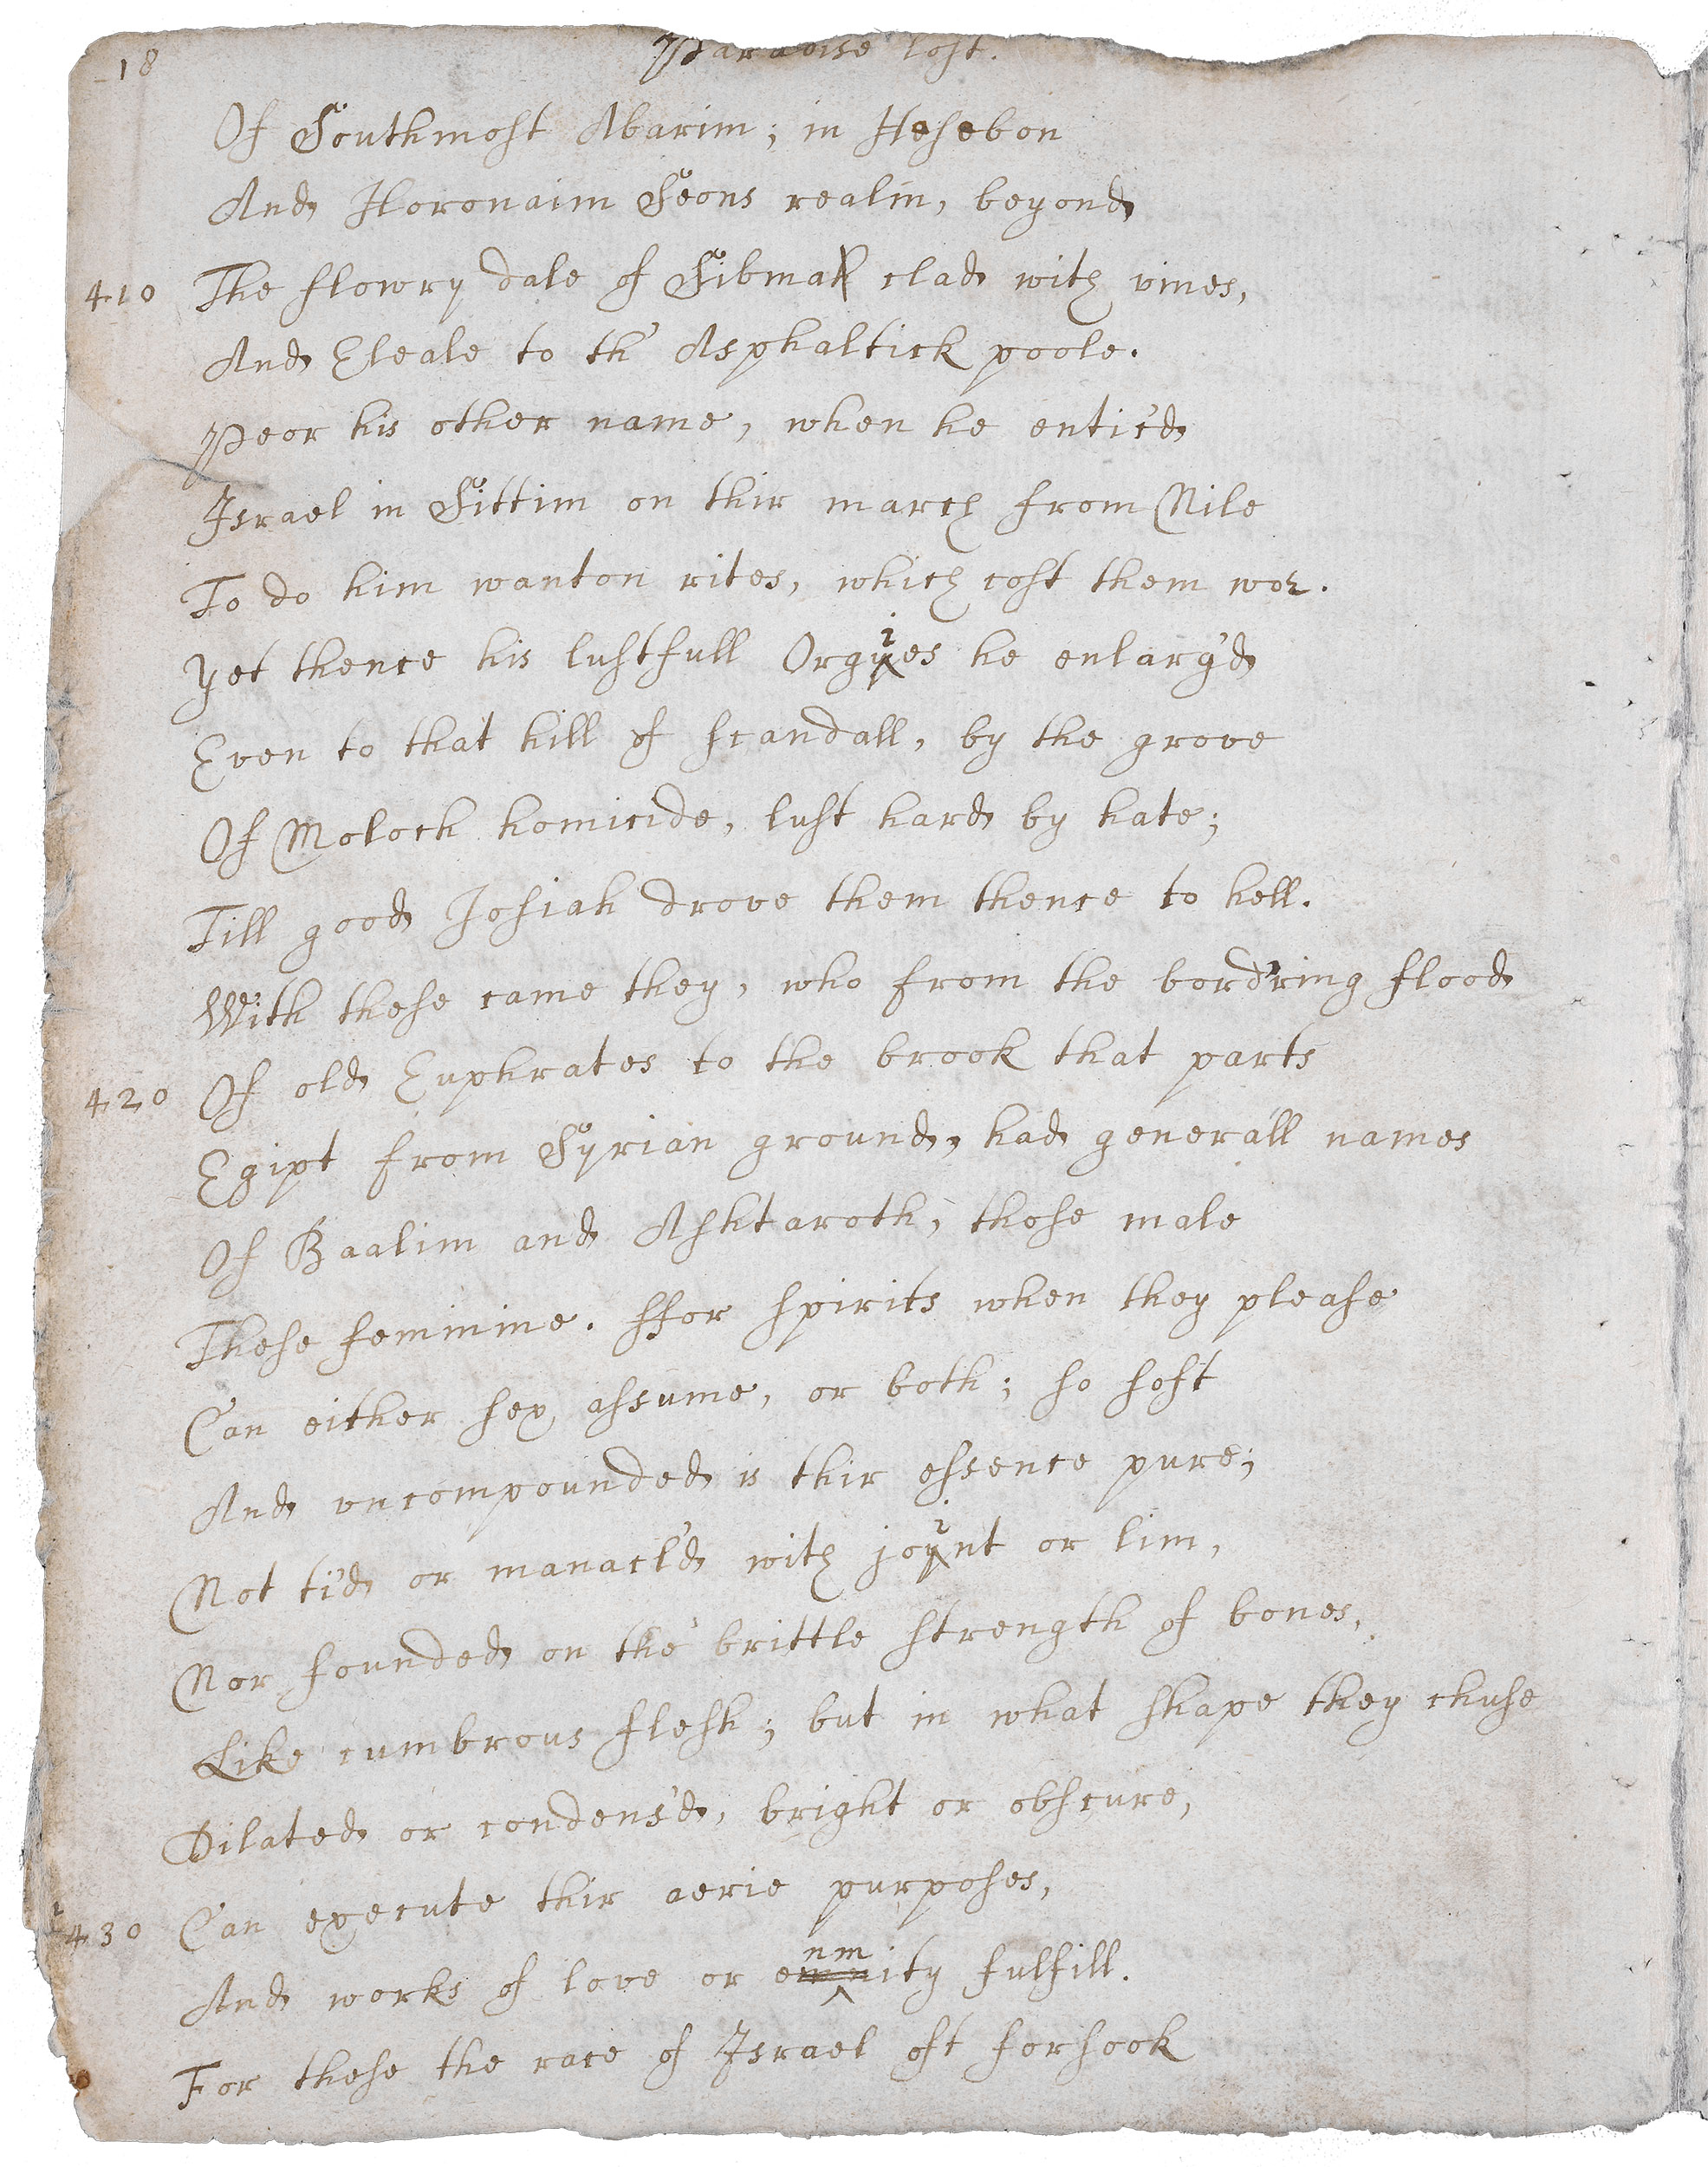 18
Paradise lost.
Of Southmost Abarim; in Hesebon
And Horonaim Seons realm, beyond
410 The flowry dale of Sibmah clad with vines,
And Eleale to th' Asphaltick poole.
Peor his other name, when he entic'd
Israel in Sittim on thir march from Nile
To do him wanton rites, which cost them woe.
Yet thence his lustfull Orgies he enlarg'd
Even to that hill of scandall, by the grove
Of Moloch homicide, lust hard by hate;
Till good Josiah drove them thence to hell.
With these came they, who from the bord'ring flood
420 Of old Euphrates to the brook that parts
Egipt from Syrian ground, had generall names
Of Baalim and Ashtaroth, those male
These feminine. ffor spirits when they please
Can either sex assume, or both; so soft
And uncompounded is thir essence pure;
Not ti'd or manacl'd with joint or lim,
Nor founded on the brittle strength of bones,
Like cumbrous flesh; but in what shape they chuse
Dilated or condens'd, bright or obscure,
430 Can execute thir aerie purposes,
And works of love or enmity fulfill.
For these the race of Israel oft forsook